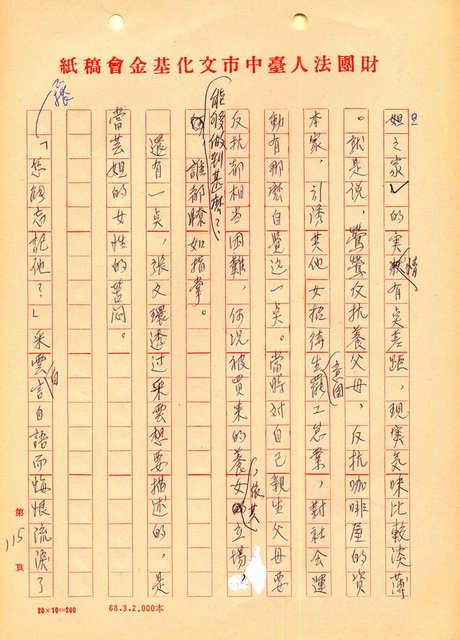 財團法人臺中市文化基金會稿紙
姐之家」的実情有奌差距，現実気味比較淡薄
。就是说，鶯鶯反抗養父母，反抗咖啡屋的資
本家，引誘其他女招待生意図罷工怠業，對社会運
動有那麽自覺這一奌。當時对自己親生父母要
反抗都相当困難，何况被買来的養女立場，
能够做到甚麽？誰都瞭如指掌。
還有一奌，張文環透过采雲想要描述的，是
當芸妲的女性的苦闷。
「怎能忘記他？」采雲自言自語而悔恨流淚了
第115頁
20×10=200
68.3.2,000本